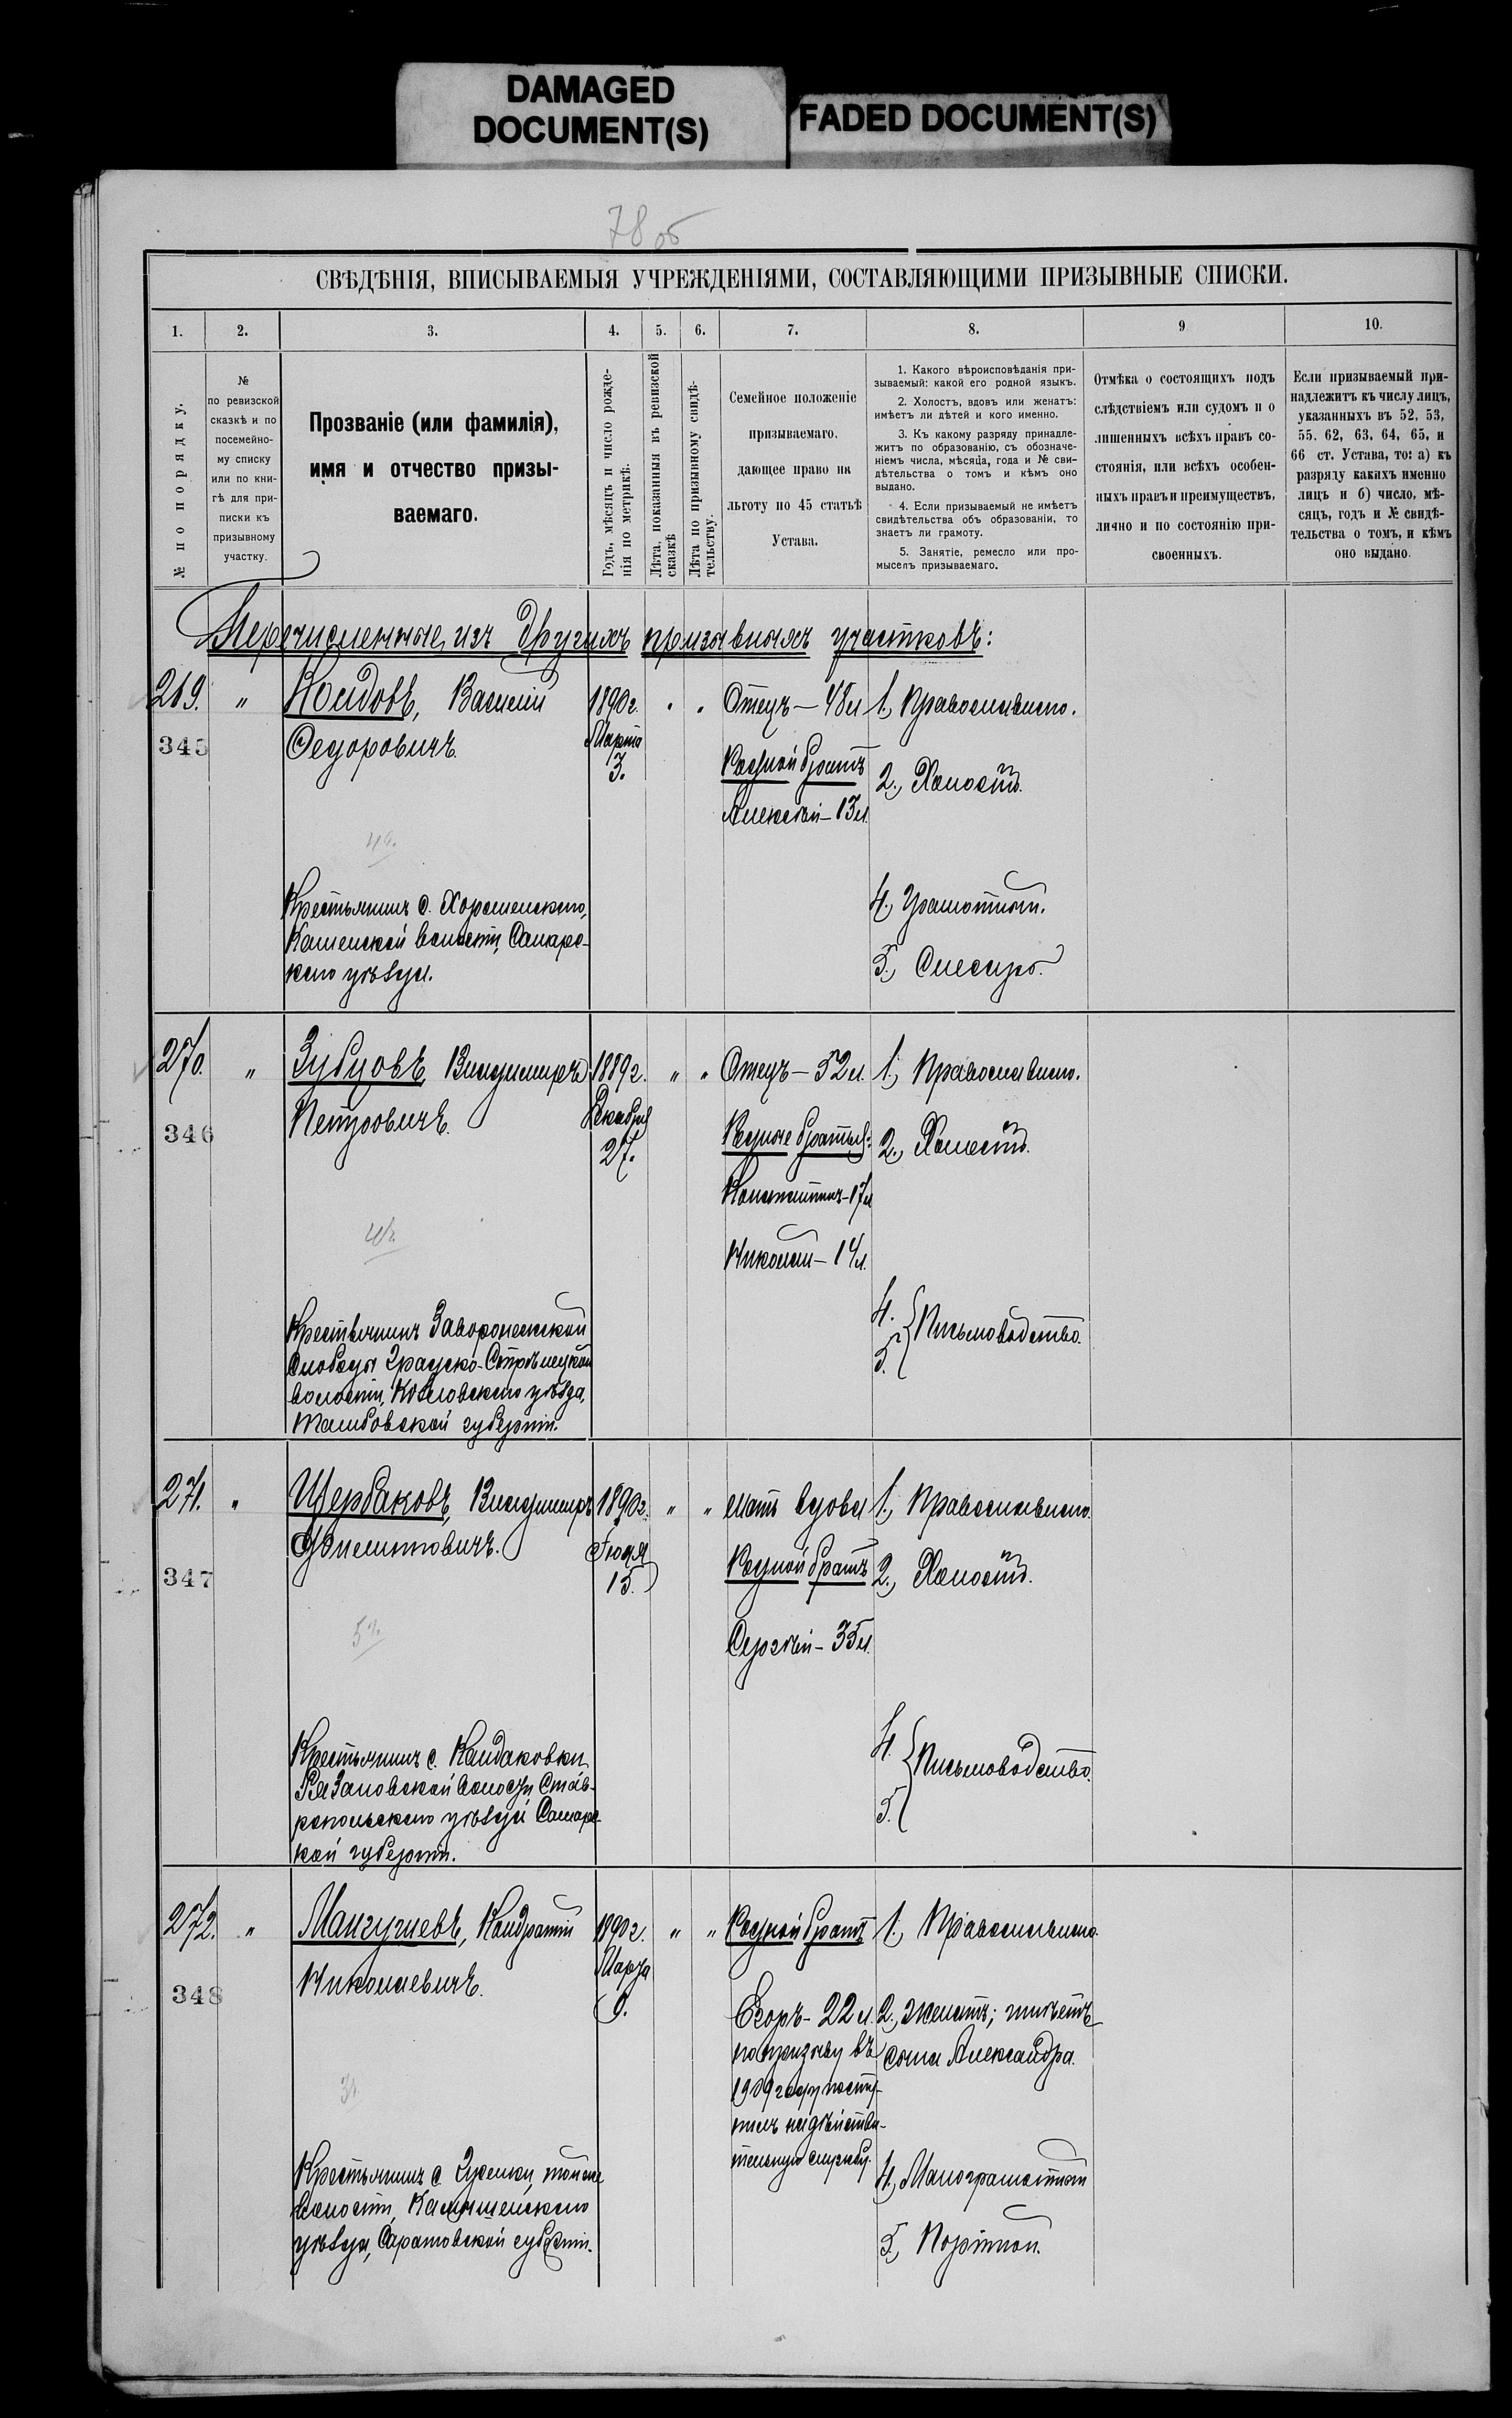 DAMAGED
DOCUMENT(S)
FADED DOCUMENT(S)
78 об
СВѢДѢНІЯ, ВПИСЫВАЕМЫЯ УЧРЕЖДЕНІЯМИ, СОСТАВЛЯЮЩИМИ ПРИЗЫВНЫЕ СПИСКИ.
1. 2. 3. 4. 5. 6. 7. 8. 9 10.
№ по порядку.
№
по ревизской
сказкѣ и по
посемейно-
му списку
или по кни-
гѣ для при-
писки къ
призывному
участку.
Прозваніе (или фамилія),
имя и отчество призы-
ваемаго.
Годъ, мѣсяцъ и число рожде-
нія по метрикѣ.
Лѣта, показанныя въ ревизской
сказкѣ
Лѣта по призывному свидѣ-
тельству.
Семейное положеніе
призываемаго,
дающее право на
льготу по 45 статьѣ
Устава.
1. Какого вѣроисповѣданія при-
зываемый: какой его родной языкъ.
2. Холостъ, вдовъ или женатъ:
имѣетъ ли дѣтей и кого именно.
3. Къ какому разряду принадле-
житъ по образованію, съ обозначе-
ніемъ числа, мѣсяца, года и № сви-
дѣтельства о томъ и кѣмъ оно
выдано.
4. Если призываемый не имѣетъ
свидѣтельства объ образованіи, то
знаетъ ли грамоту.
5. Занятіе, ремесло или про-
мыселъ призываемаго.
Отмѣка о состоящихъ подъ
слѣдствіемъ или судомъ и о
лишенныхъ всѣхъ правъ со-
стоянія, или всѣхъ особен-
ныхъ правъ и преимуществъ,
лично и по состоянію при-
своенныхъ.
Если призываемый при-
надлежитъ къ числу лицъ,
указанныхъ въ 52, 53,
55. 62, 63, 64, 65, и
66 ст. Устава, то: а) къ
разряду какихъ именно
лицъ и б) число, мѣ-
сяцъ, годъ и № свидѣ-
тельства о томъ, и кѣмъ
оно выдано.
Перечисленные изъ другихъ призывныхъ участковъ:
269. "
345
Василій
Федоровичъ.
Крестьянинъ с.
волости, Самарс-
каго уѣзда.
1890 г.
Марта
3.
" "
Отецъ — 48 л.
Родной братъ
Алексѣй — 13 л.
1., Православнаго.
2., Холостъ.
4., Грамотный.
5., Слесарь.
270. "
346
Зубцовъ, Владимиръ
Петровичъ.
Крестьянинъ Заворонежской
Слободы Градско-Стрѣлецкой
волости, Козловскаго уѣзда,
Тамбовской губерніи.
1889 г.
Декабря
27.
" "
Отецъ — 52 л.
Родные братья:
Константинъ — 17 л.
Николай — 14 л.
1., Православнаго.
2., Холостъ.
4.
5. Письмоводство.
271. "
347
Щербаковъ, Владимиръ
Филипповичъ.
Крестьянинъ с. Кандаковки
Рязановской волости Став-
ропольскаго уѣзда Самарс-
кой губерніи.
1890 г.
15.
" "
мать вдова
Родной братъ
Сергѣй — 35 л.
1., Православнаго.
2., Холостъ.
4.
5. Письмоводство.
272. "
348
Мангушевъ, Кондратій
Николаевичъ.
Крестьянинъ с. Гуселки, той же
волости, Камышинскаго
уѣзда, Саратовской губерніи.
1890 г.
Марта
9.
" "
Родной братъ
Егоръ — 22 л.
по призыву въ
1909 году посту-
пилъ на дѣйстви-
тельную службу.
1., Православнаго.
2., женатъ; имѣетъ
сына Александра.
4., Малограмотный
5., Портной.